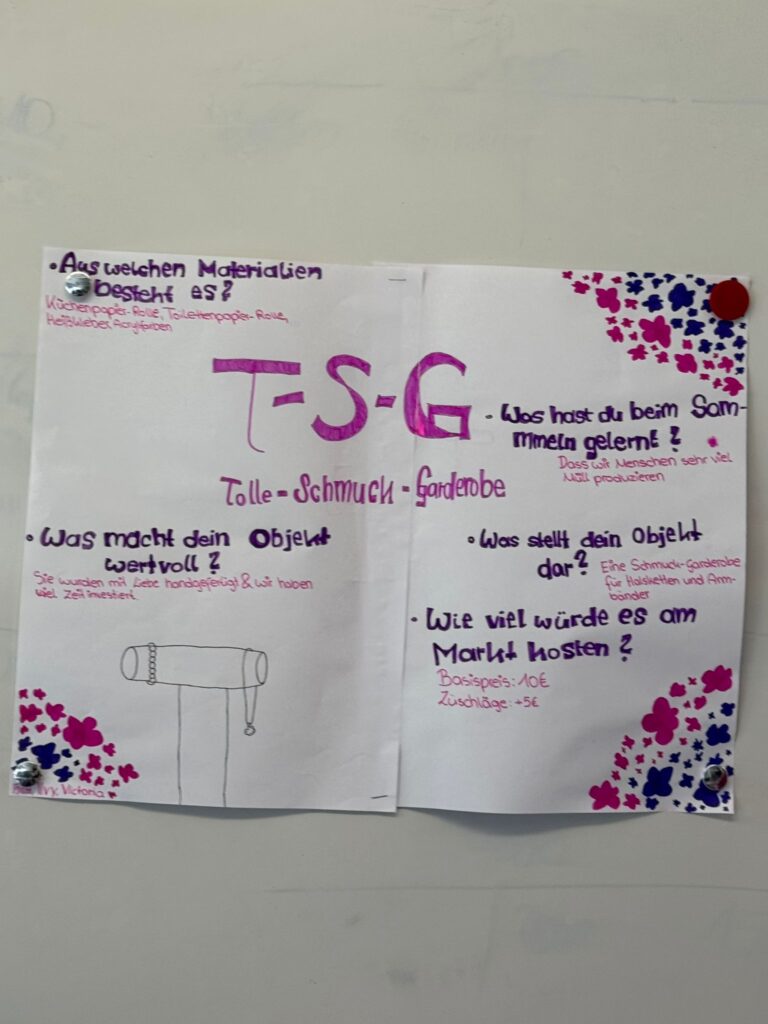 • Aus welchen Materialien
besteht es?
Küchenpapier-Rolle, Toilettenpapier-Rolle,
Heißkleber, Acrylfarben
T-S-G
Tolle-Schmuck-Garderobe
• Was hast du beim Sam-
mmeln gelernt?
Dass wir Menschen sehr viel
Müll produzieren
• Was macht dein Objekt
wertvoll?
Sie wurden mit Liebe handgefertigt & wir haben
viel Zeit investiert.
• Was stellt dein Objekt
dar?
Eine Schmuck-Garderobe
für Halsketten und Arm-
bänder
• Wie viel würde es am
Markt kosten?
Basispreis: 10€
Zuschläge: +5€
Victoria